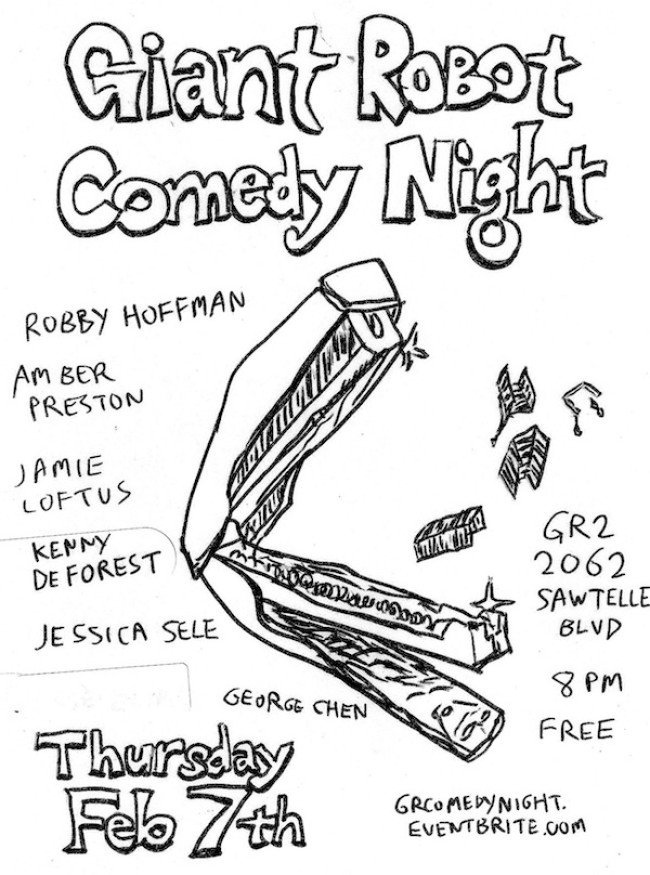 Giant Robot
Comedy Night
ROBBY HOFFMAN
AMBER
PRESTON
JAMIE
LOFTUS
KENNY
DEFOREST
JESSICA SELE
GEORGE CHEN
GR2
2062
SAWTELLE
BLVD
8 PM
FREE
Thursday
Feb 7th
GRCOMEDYNIGHT.
EVENTBRITE.COM